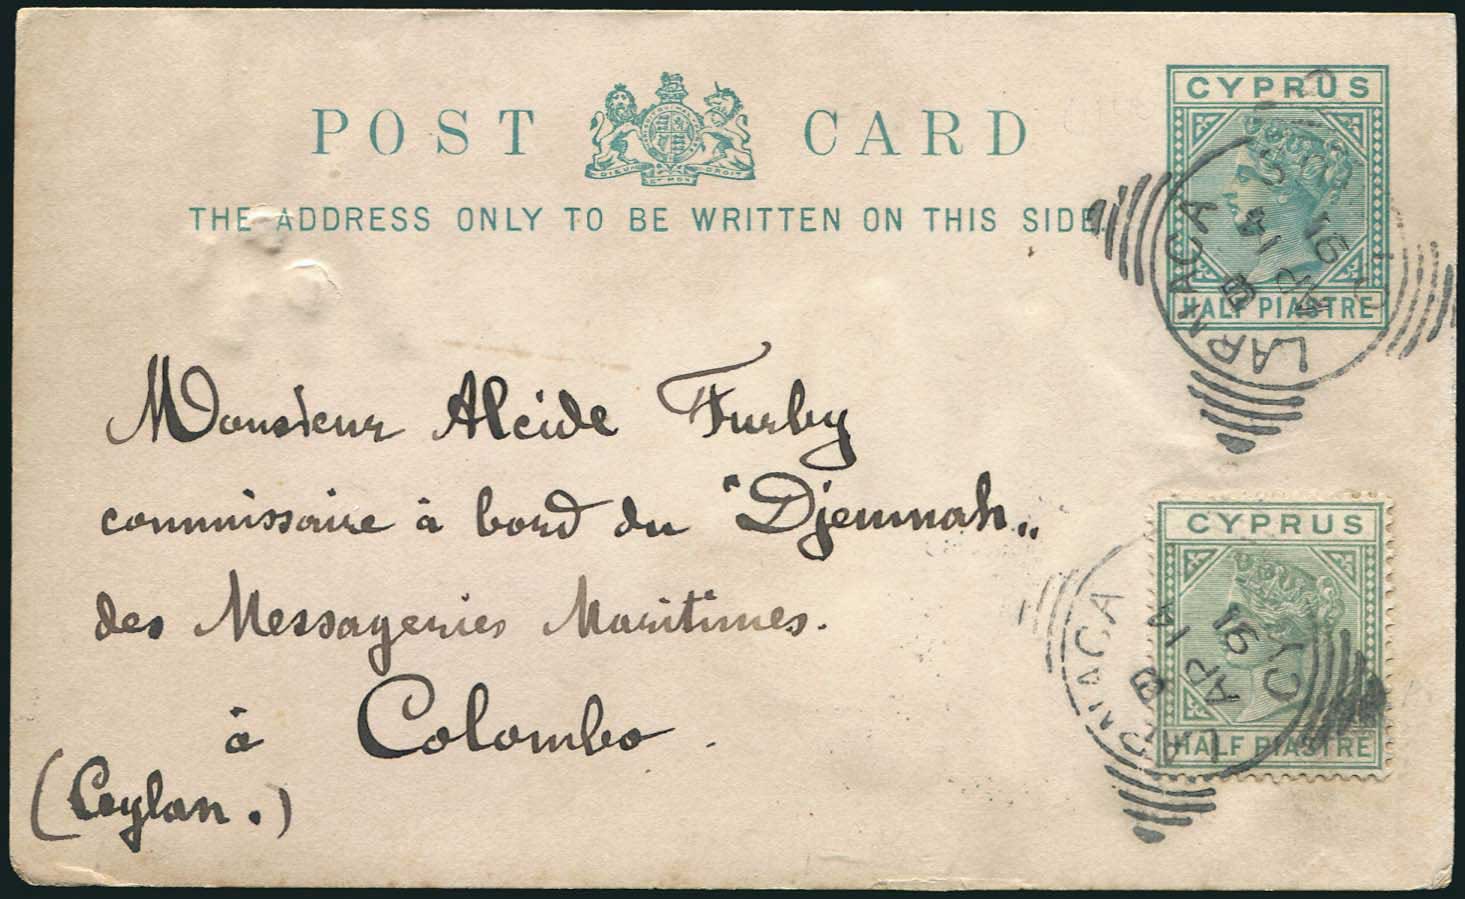 POST CARD
DIEU ET MON DROIT
THE ADDRESS ONLY TO BE WRITTEN ON THIS SIDE.
CYPRUS
HALF PIASTRE
LARNACA
B
14
AP
91
Monsieur Alcide Furby
commissaire à bord du "Djemnah"
des Messageries Maritimes.
à Colombo.
(Ceylan.)
CYPRUS
HALF PIASTRE
LARNACA
CY
B
14
AP
91